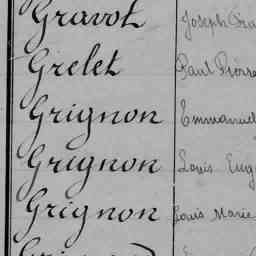 Gravot Joseph
Grelet Paul Pierre
Grignon Emmanuel
Grignon Louis Eug
Grignon Louis Marie